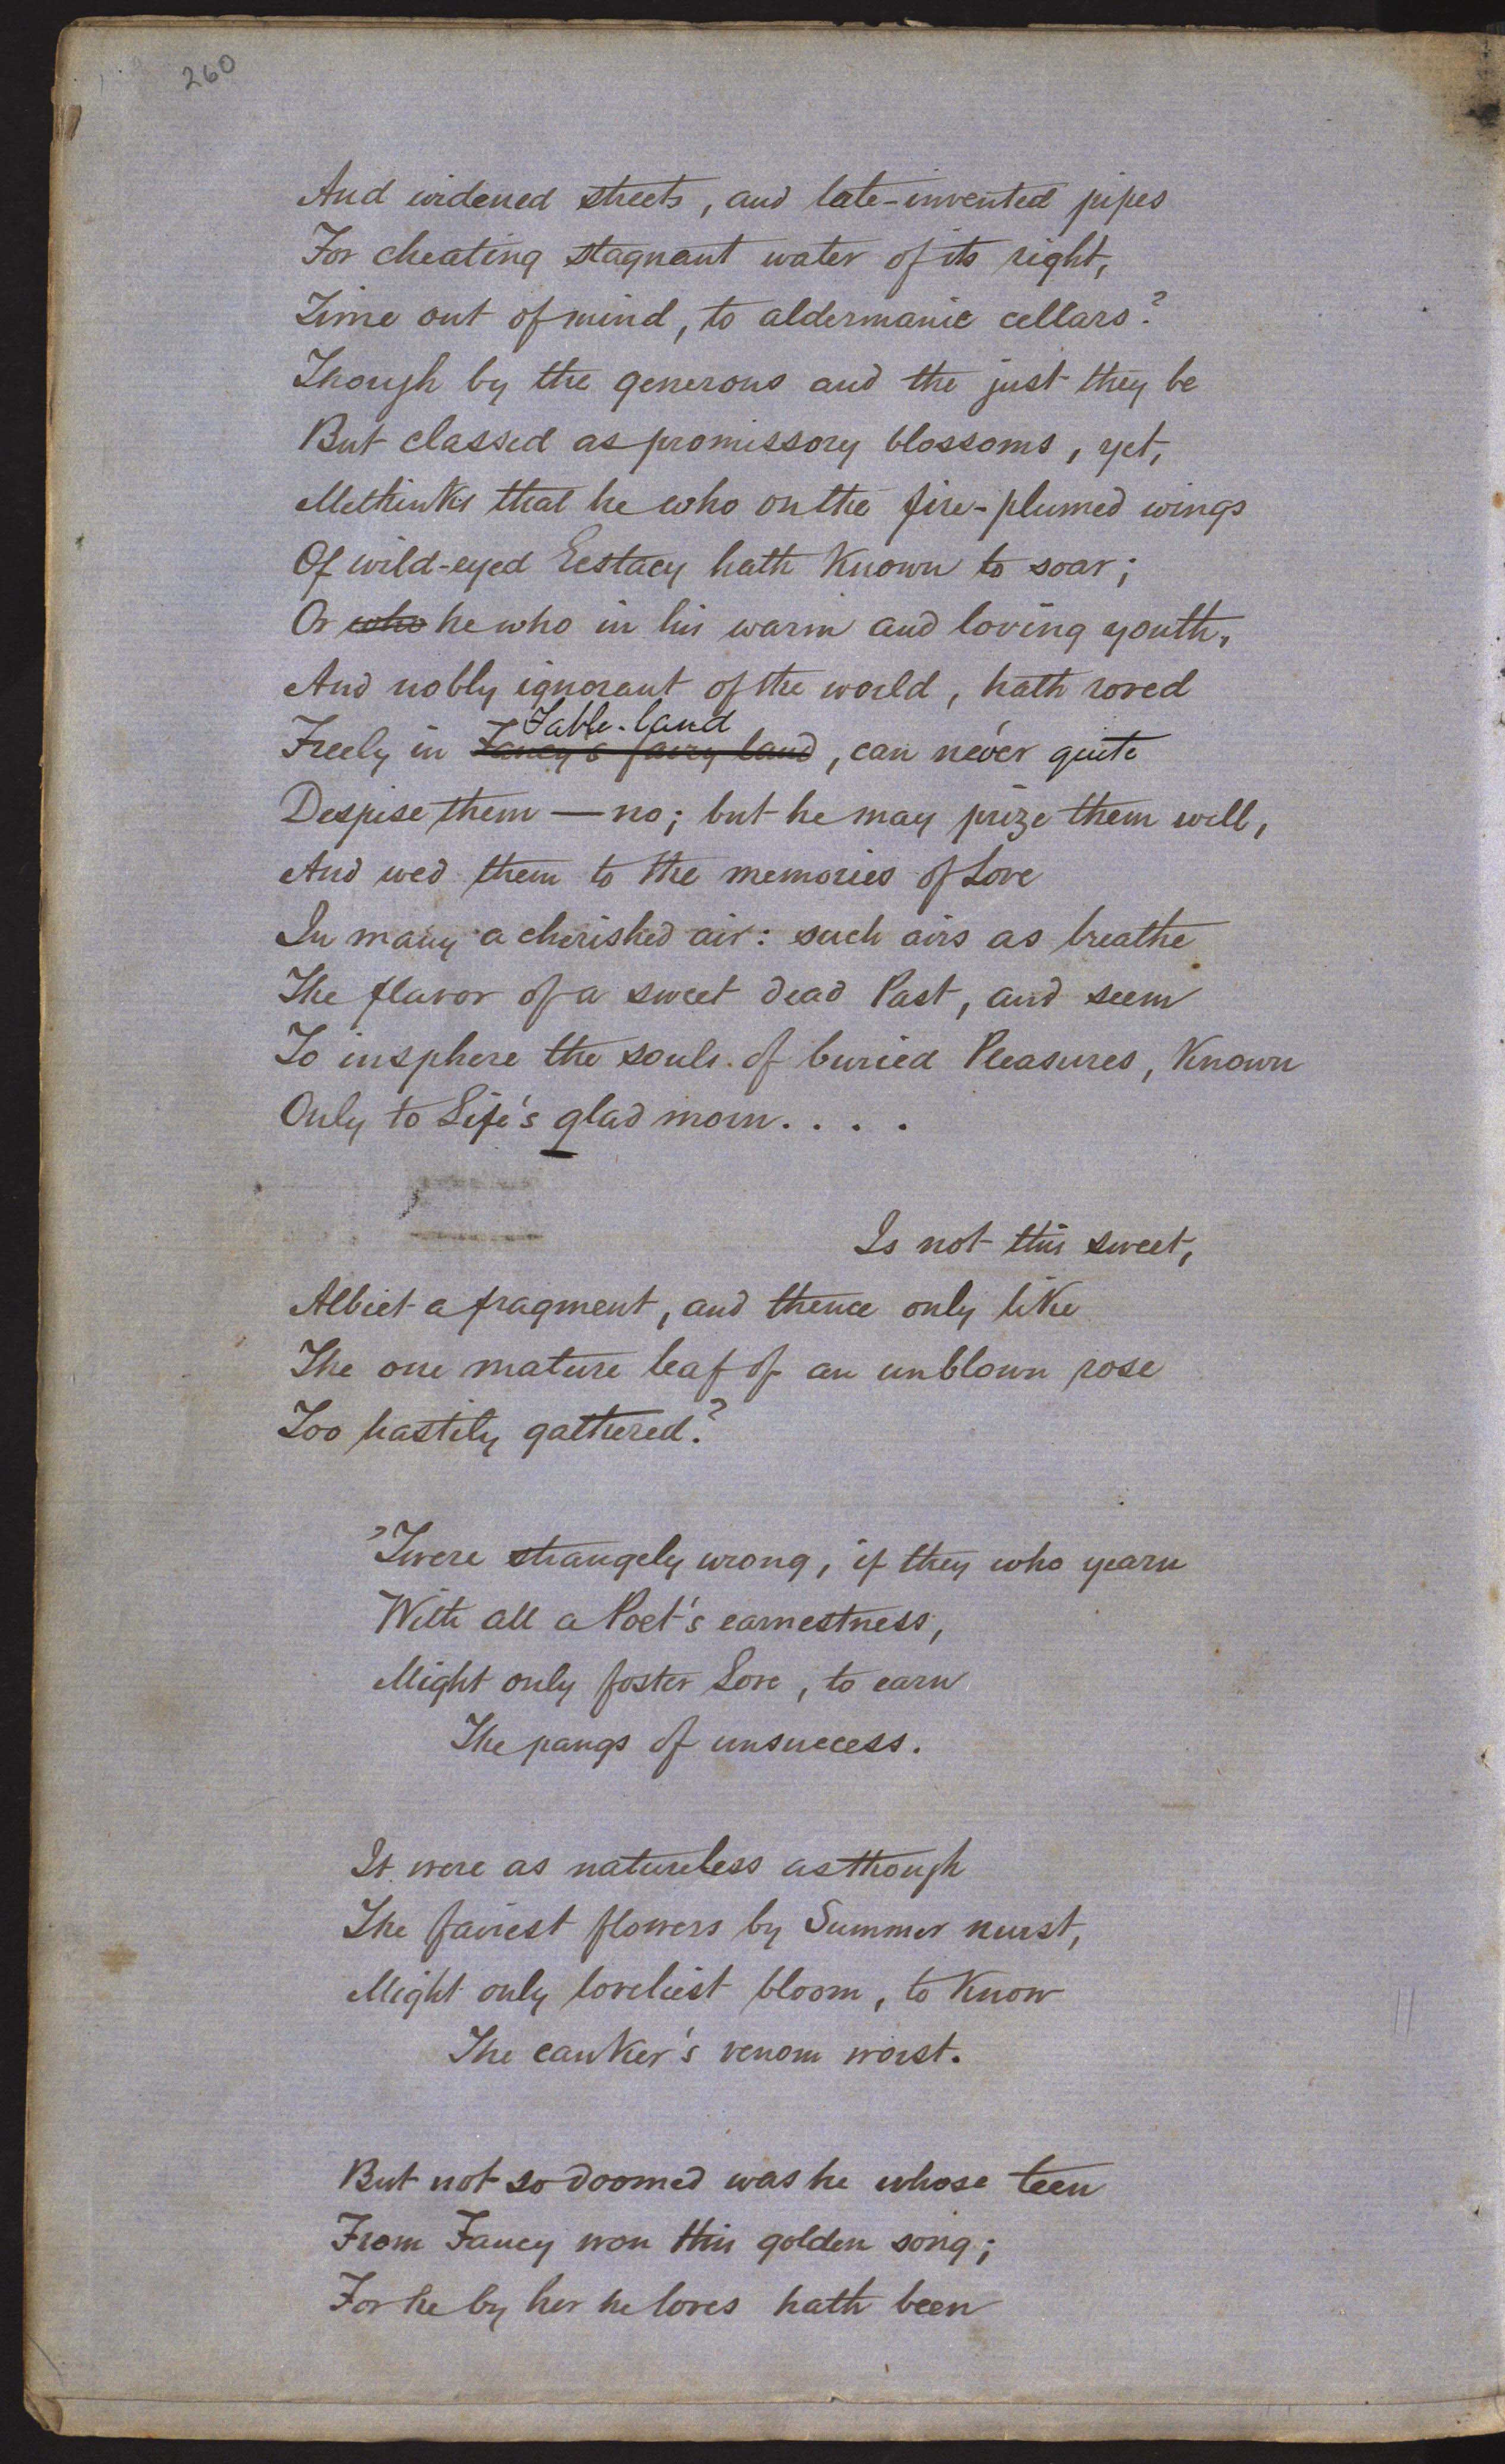 260
And widened streets, and late-invented pipes
For cheating stagnant water of its right,
Time out of mind, to aldermanic cellars?
Though by the generous and the just they be
But classed as promissory blossoms, yet,
Methinks that he who on the fire-plumed wings
Of wild-eyed Ecstacy hath known to soar;
Or who he who in his warm and loving youth,
And nobly ignorant of the world, hath roved
Fable-land
Freely in Fancy's fairy land, can never quite
Despise them — no; but he may prize them well,
And wed them to the memories of Love
In many a cherished air: such airs as breathe
The flavor of a sweet dead Past, and seem
To insphere the souls of buried Pleasures, known
Only to Life's glad morn. . . .
Is not this sweet,
Albiet a fragment, and thence only like
The one mature leaf of an unblown rose
Too hastily gathered?
'Twere strangely wrong, if they who yearn
With all a Poet's earnestness,
Might only foster Love, to earn
The pangs of unsuccess.
It were as natureless as though
The fairest flowers by Summer nurst,
Might only loveliest bloom, to know
The canker's venom worst.
But not so doomed was he whose teen
From Fancy won this golden song;
For he by her he loves hath been